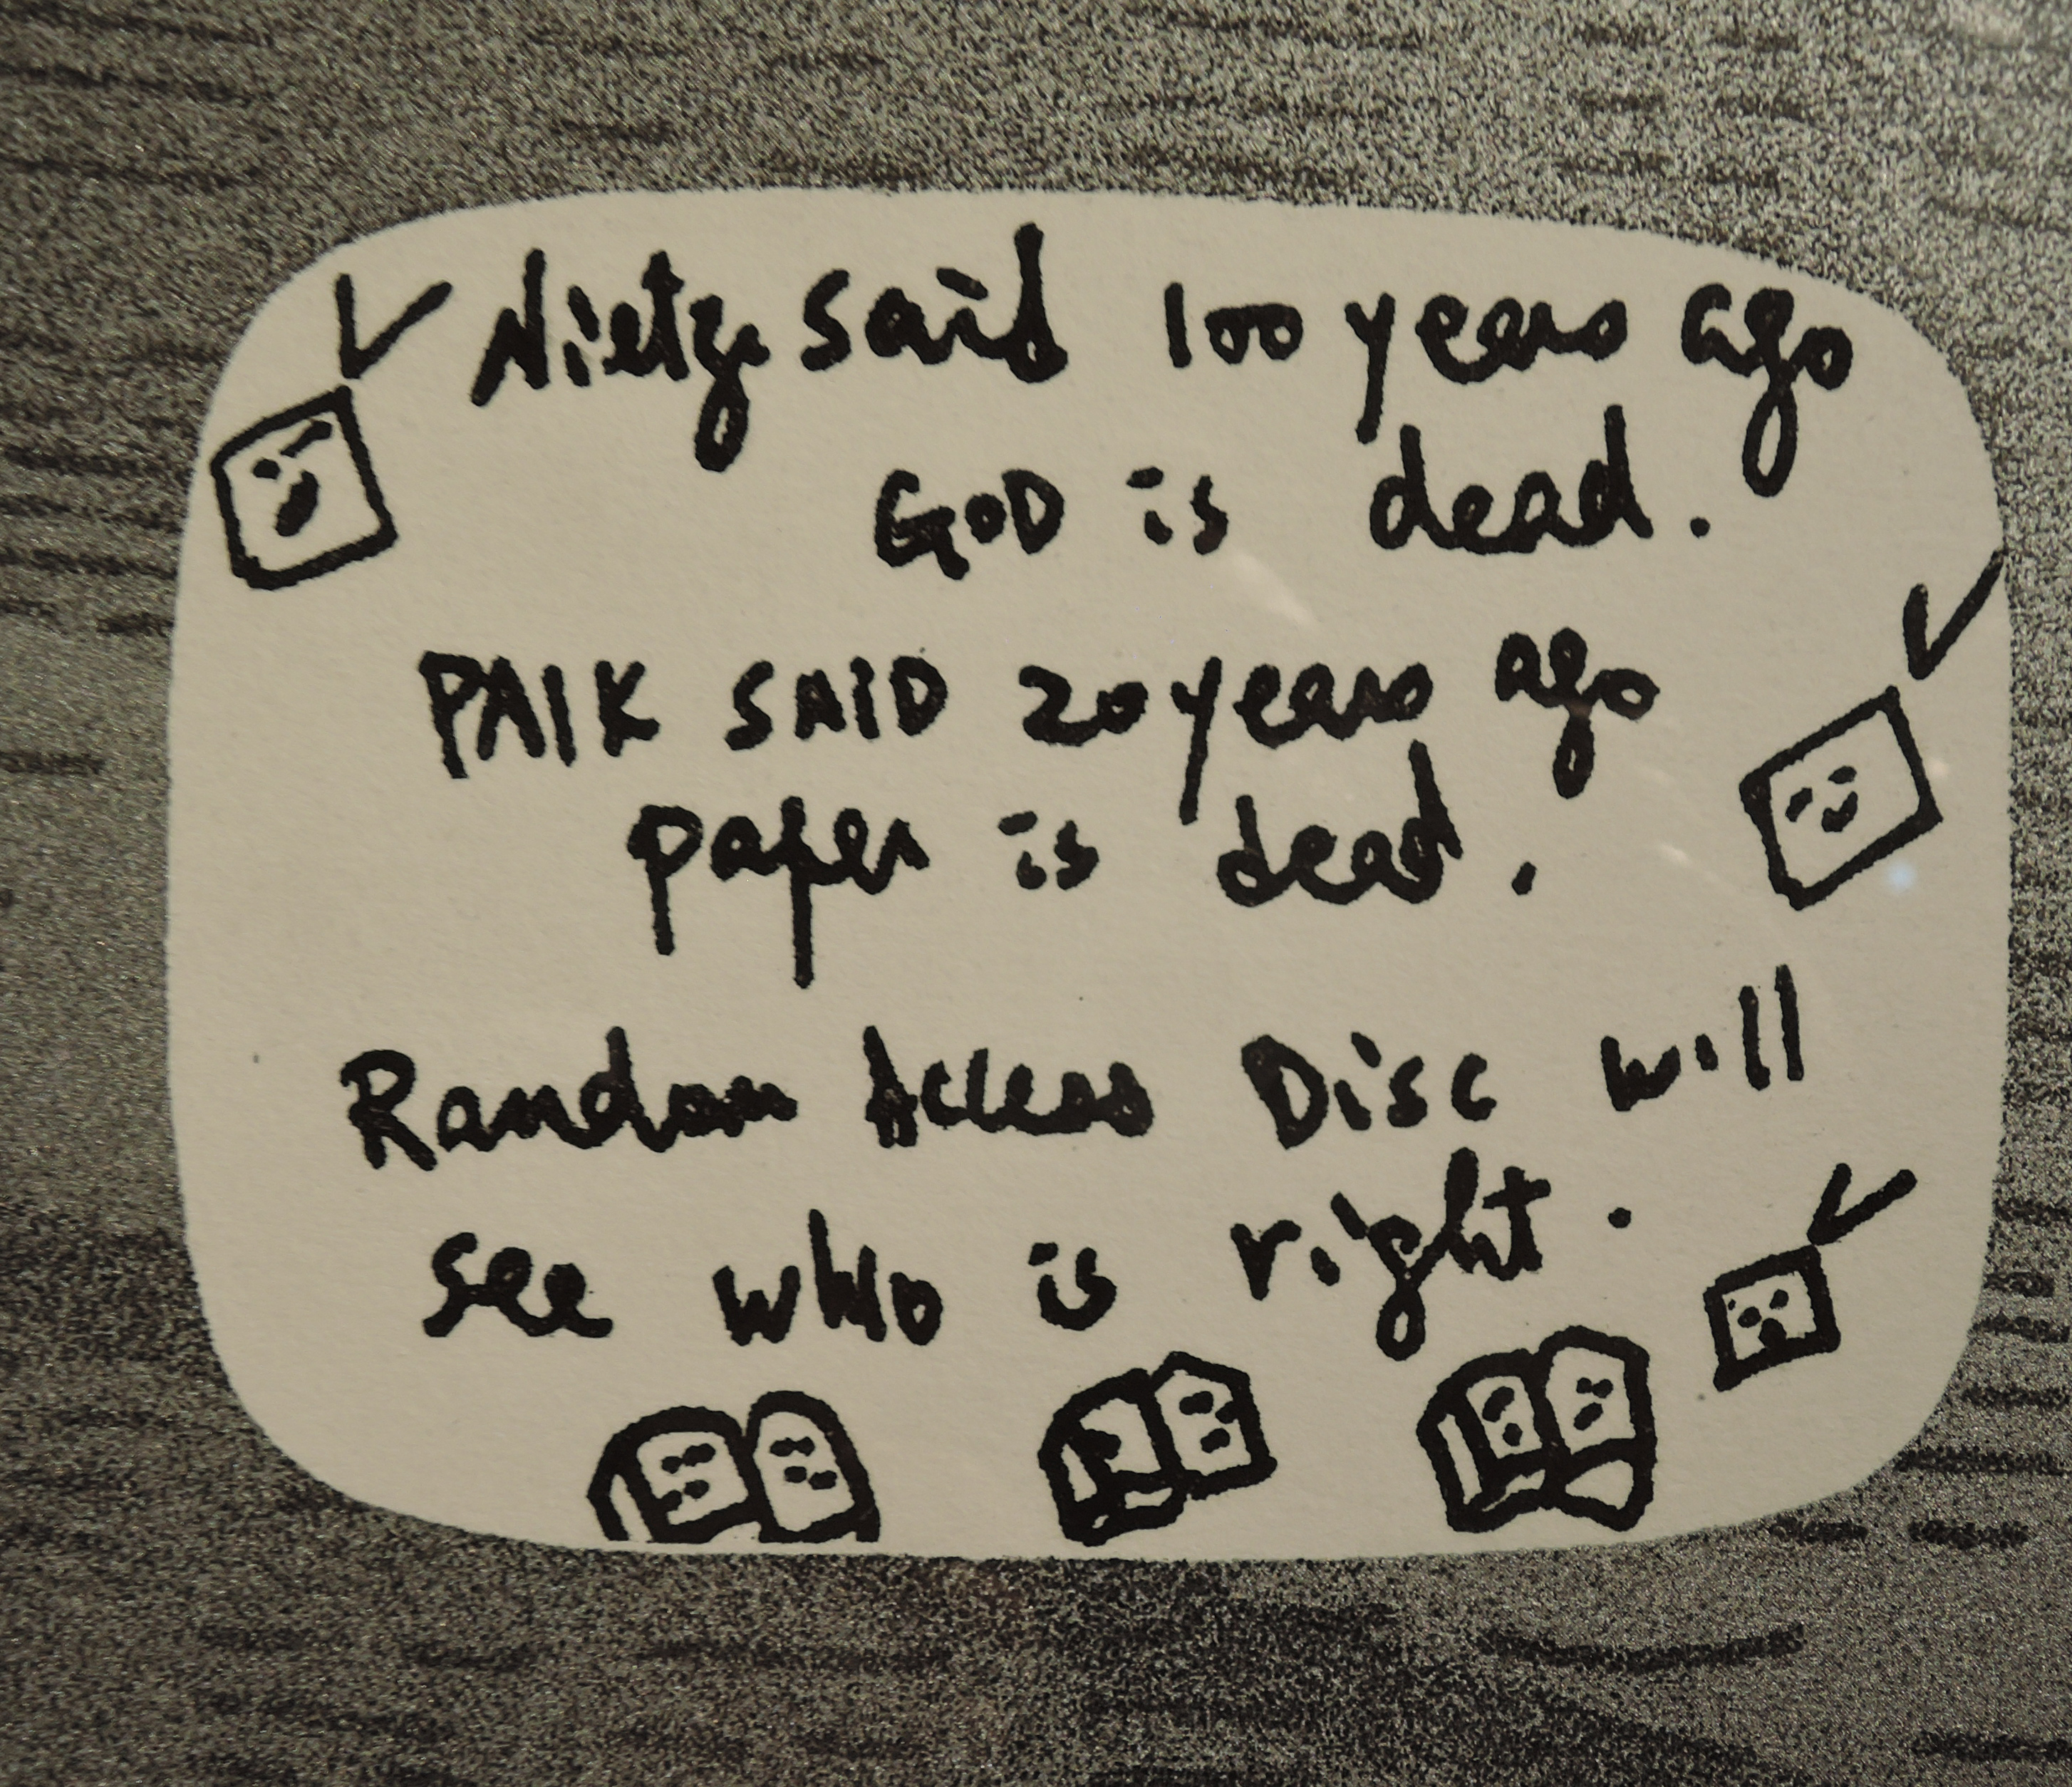 Nietze said 100 years ago
GOD is dead.
PAIK SAID 20 years ago
paper is dead.
Random Access Disc will
see who is right.